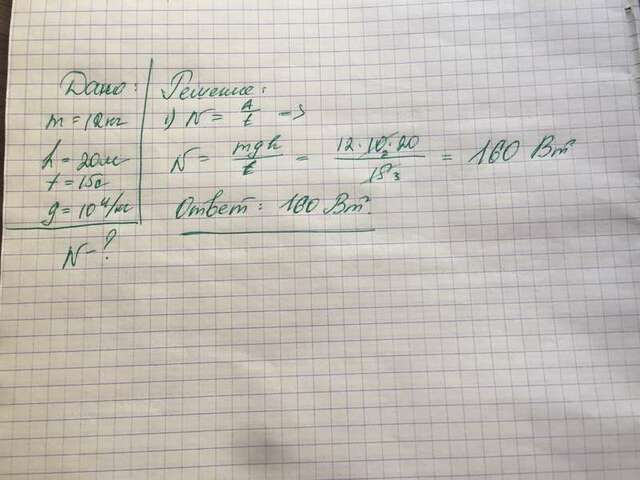 Дано:
m = 12кг
h = 20м
t = 15с
g = 10 Н/кг
N - ?
Решение:
1) N = A/t →
N = mgh/t = 12·10·20/15 = 160 Вт
Ответ: 160 Вт.